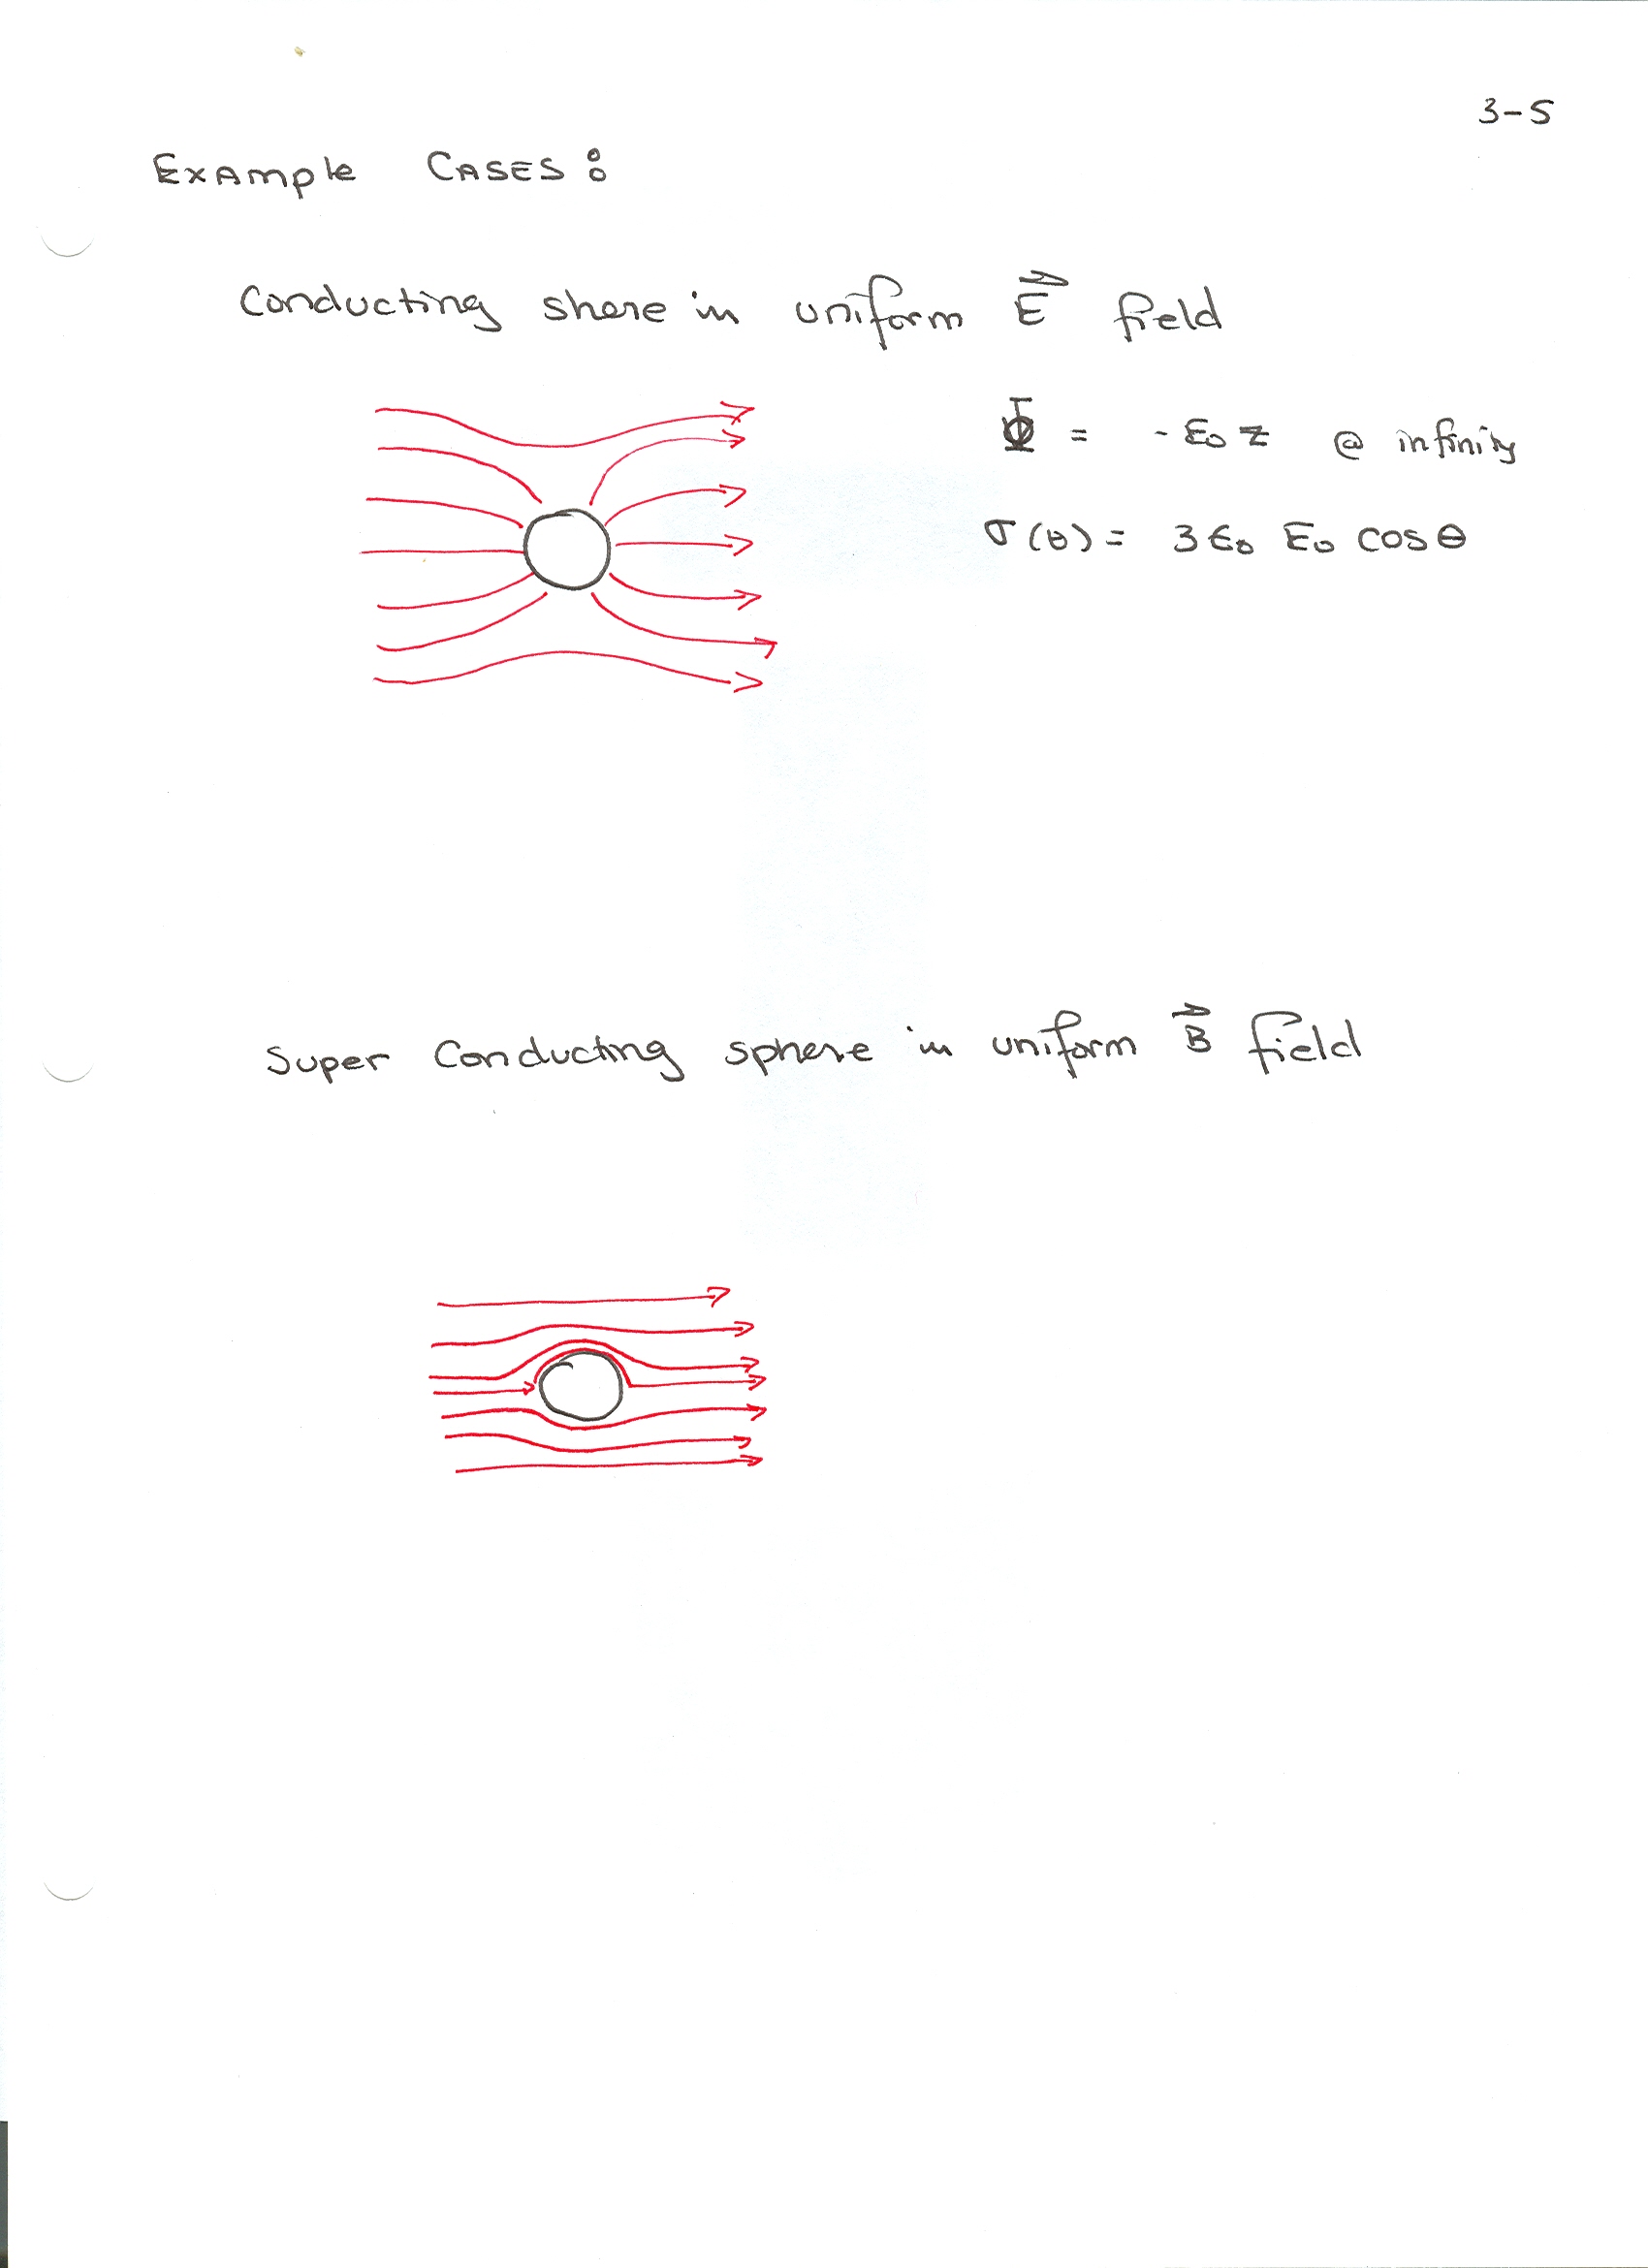 3-5
Example Cases:
Conducting shere in uniform E⃗ field
Φ = - E₀ z @ infinity
σ(θ) = 3 ϵ₀ E₀ cos θ
Super Conducting sphere in uniform B⃗ field